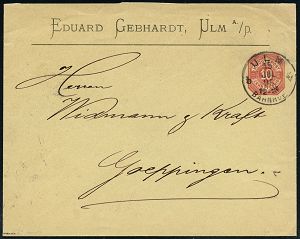 EDUARD GEBHARDT, ULM a/D.
ULM
10
BAHNHOF
Herren
Widmann & Kraft
Goeppingen.